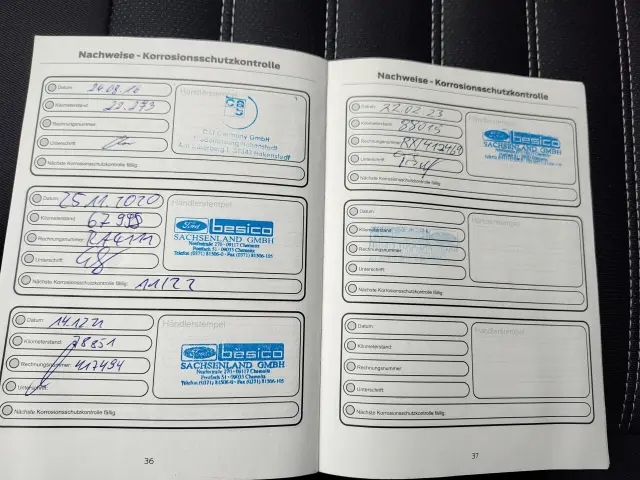 Nachweise - Korrosionsschutzkontrolle
Datum: 24.08.16
Kilometerstand: 22.273
Rechnungsnummer:
Unterschrift:
Nächste Korrosionsschutzkontrolle fällig:
Händlerstempel
Germany GmbH
Datum: 25.11.2020
Kilometerstand: 67995
Rechnungsnummer:
Unterschrift:
Nächste Korrosionsschutzkontrolle fällig: 11/22
Händlerstempel
Ford besico
SACHSENLAND GMBH
Neefestraße 270 · 09117 Chemnitz
Postfach 51 · 09033 Chemnitz
Telefon (0371) 81506-0 · Fax (0371) 81506-105
Datum: 14.12.21
Kilometerstand: 78851
Rechnungsnummer: 417494
Unterschrift:
Nächste Korrosionsschutzkontrolle fällig:
Händlerstempel
Ford besico
SACHSENLAND GMBH
Neefestraße 270 · 09117 Chemnitz
Postfach 51 · 09033 Chemnitz
Telefon (0371) 81506-0 · Fax (0371) 81506-105
36
Nachweise - Korrosionsschutzkontrolle
Datum: 22.02.23
Kilometerstand: 88015
Rechnungsnummer:
Unterschrift:
Nächste Korrosionsschutzkontrolle fällig:
Ford besico
SACHSENLAND GMBH
Datum:
Kilometerstand:
Rechnungsnummer:
Unterschrift:
Nächste Korrosionsschutzkontrolle fällig:
Händlerstempel
Datum:
Kilometerstand:
Rechnungsnummer:
Unterschrift:
Nächste Korrosionsschutzkontrolle fällig:
Händlerstempel
37